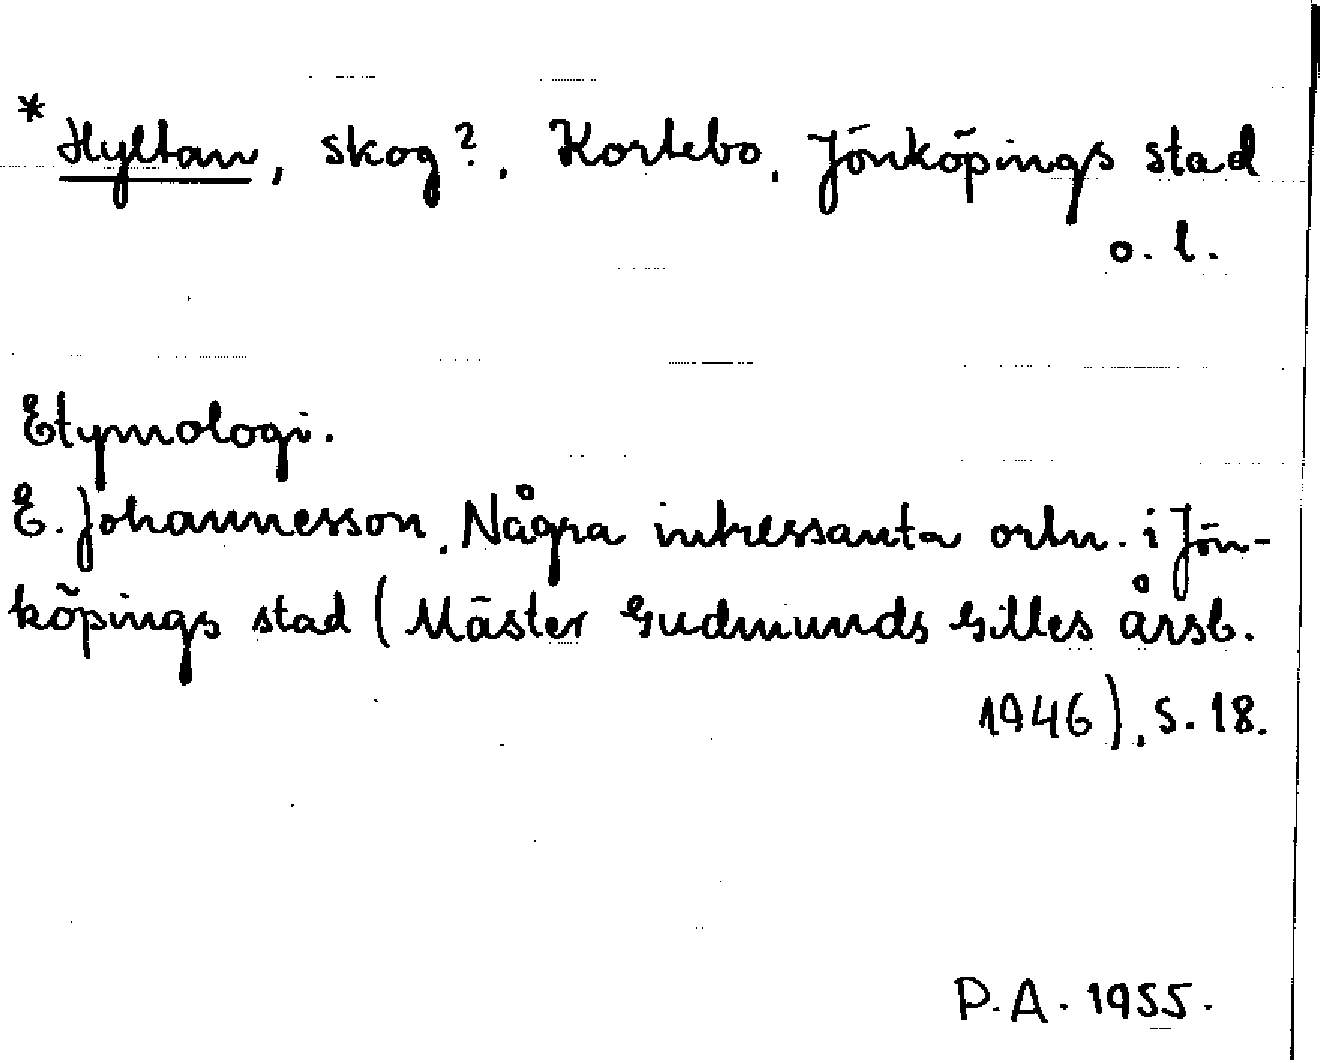 * Hyltan, skog?. Kortebo. Jönköpings stad
o. l.
Etymologi.
E. Johannesson, Några intressanta ortn. i Jön-
köpings stad (Mäster Gudmunds Gilles årsb.
1946), s. 18.
P. A. 1955.